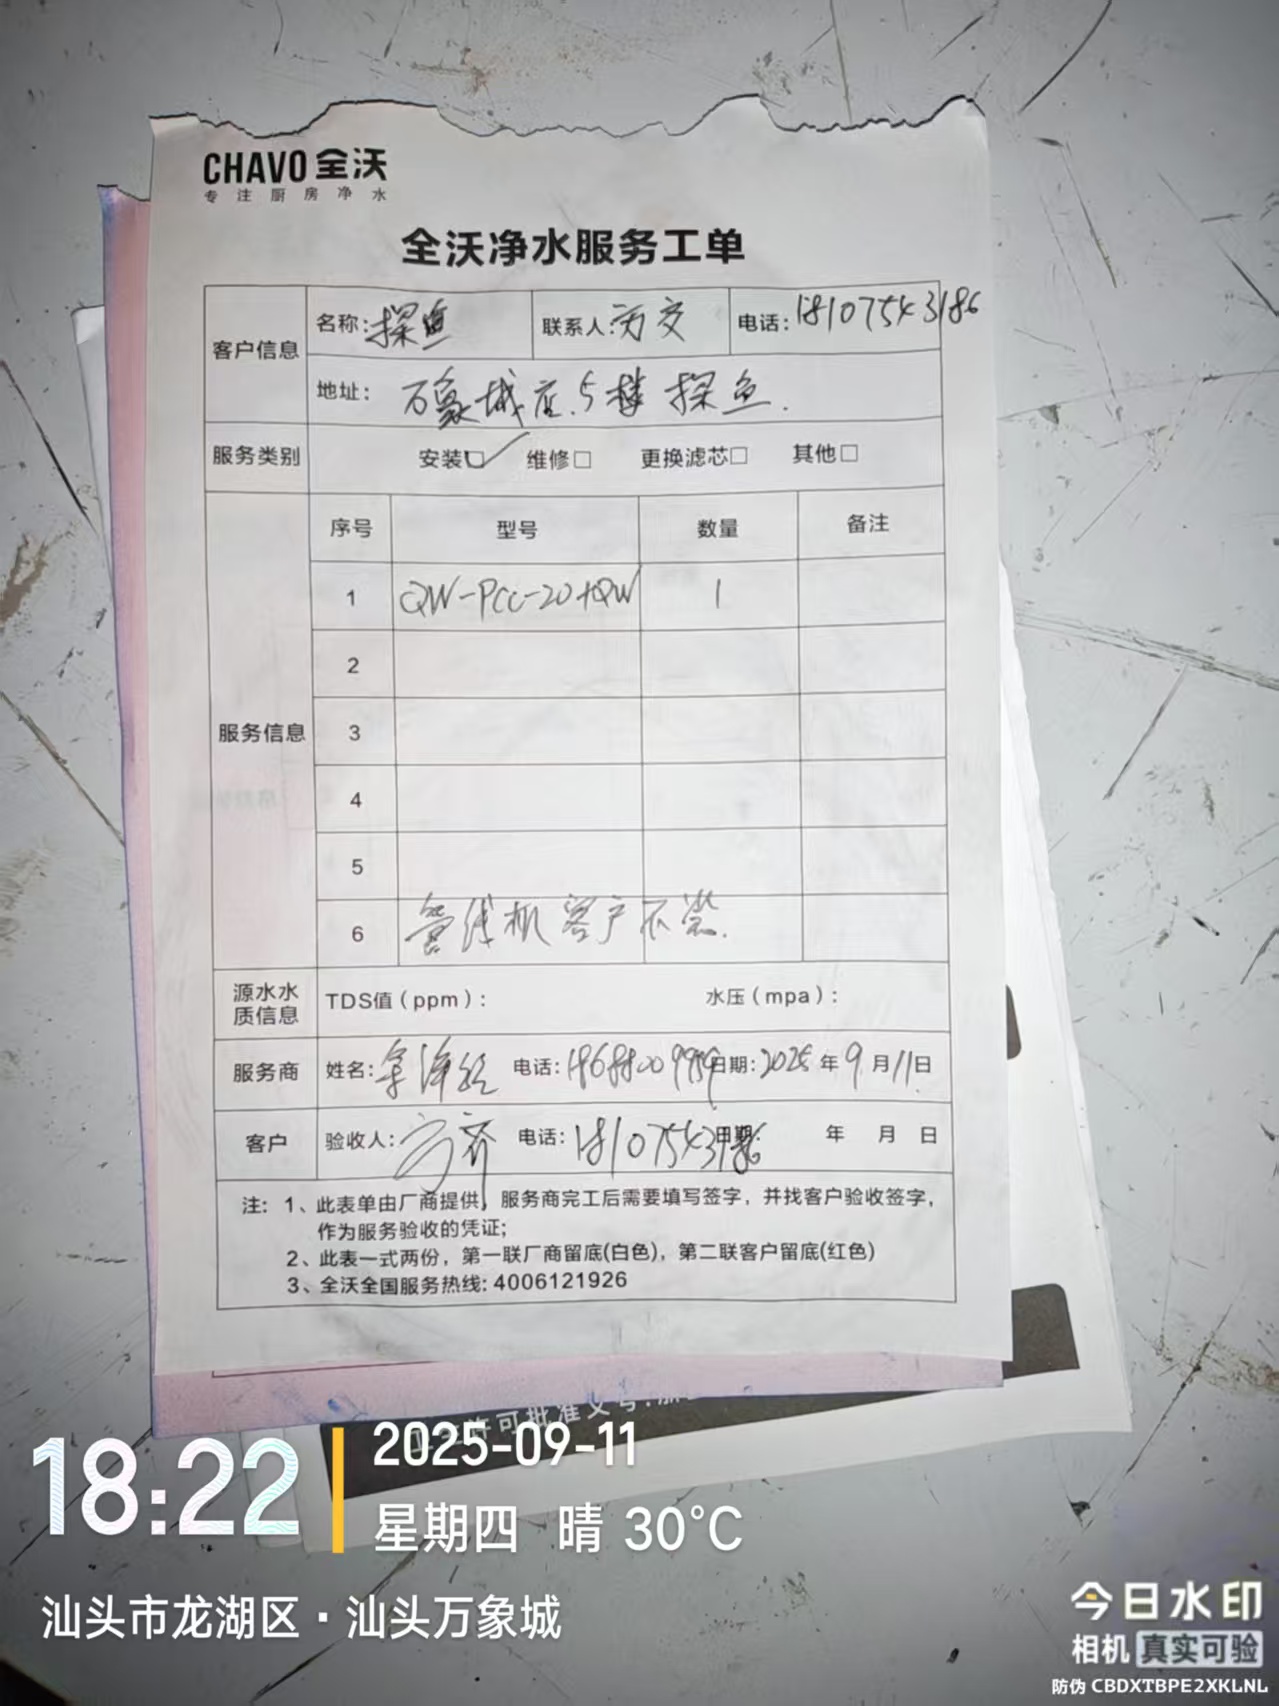 CHAVO 全沃
专注厨房净水
全沃净水服务工单
客户信息 名称:探鱼 联系人: 电话:18107543186
地址: 万象城店.5楼 探鱼.
服务类别 安装☑ 维修□ 更换滤芯□ 其他□
服务信息 序号 型号 数量 备注
1 QW-PCC-20+QW 1
2
3
4
5
6 管线机客户不装.
源水水质信息 TDS值(ppm): 水压(mpa):
服务商 姓名: 电话: 日期:2025年9月11日
客户 验收人: 电话:18107543186 日期: 年 月 日
注: 1、此表单由厂商提供,服务商完工后需要填写签字,并找客户验收签字,
作为服务验收的凭证;
2、此表一式两份,第一联厂商留底(白色),第二联客户留底(红色)
3、全沃全国服务热线: 4006121926
许可批准文号:
18:22
2025-09-11
星期四 晴 30°C
汕头市龙湖区·汕头万象城
今日水印
相机 真实可验
防伪 CBDXTBPE2XKLNL